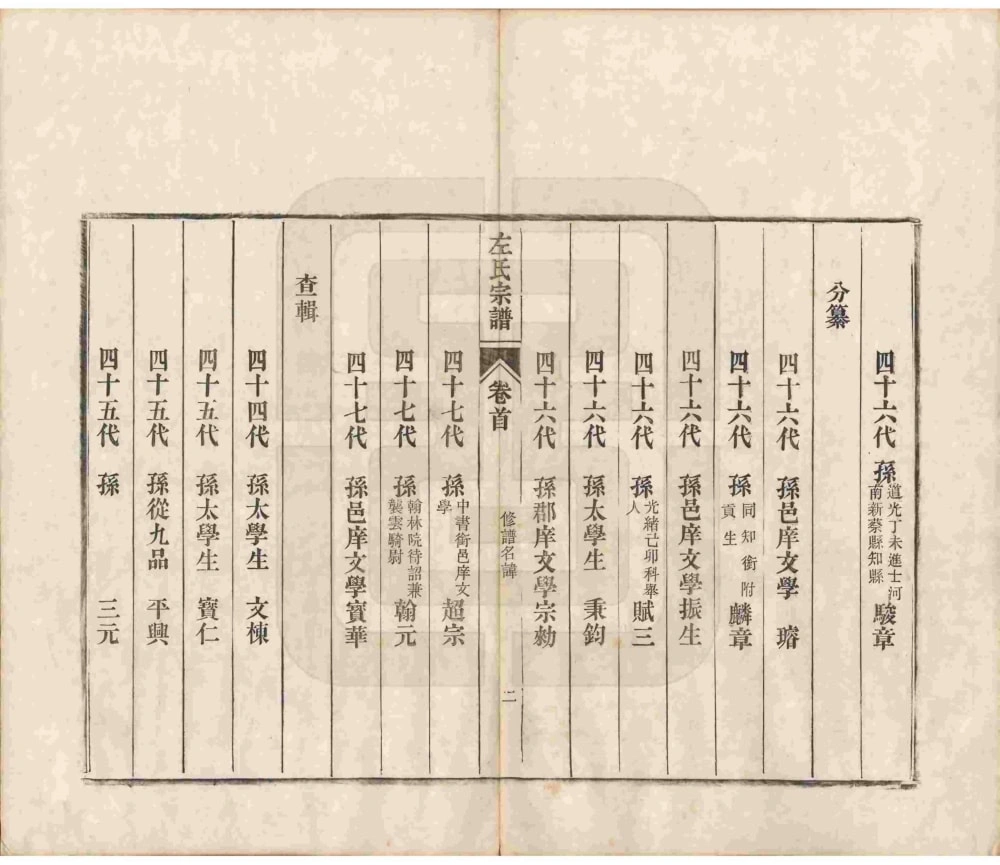 四十六代 孫 道光丁未進士河南新蔡縣知縣 駿章
分纂
四十六代 孫邑庠文學 瑢
四十六代 孫 同知銜附貢生 麟章
四十六代 孫邑庠文學振生
四十六代 孫 光緒己卯科舉人 賦三
四十六代 孫太學生 秉鈞
四十六代 孫郡庠文學宗勑
左氏宗譜 卷首 修譜名諱 二
四十七代 孫 中書銜邑庠文學 超宗
四十七代 孫 翰林院待詔兼襲雲騎尉 翰元
四十七代 孫邑庠文學寶華
查輯
四十四代 孫太學生 文棟
四十五代 孫太學生 寶仁
四十五代 孫從九品 平興
四十五代 孫 三元